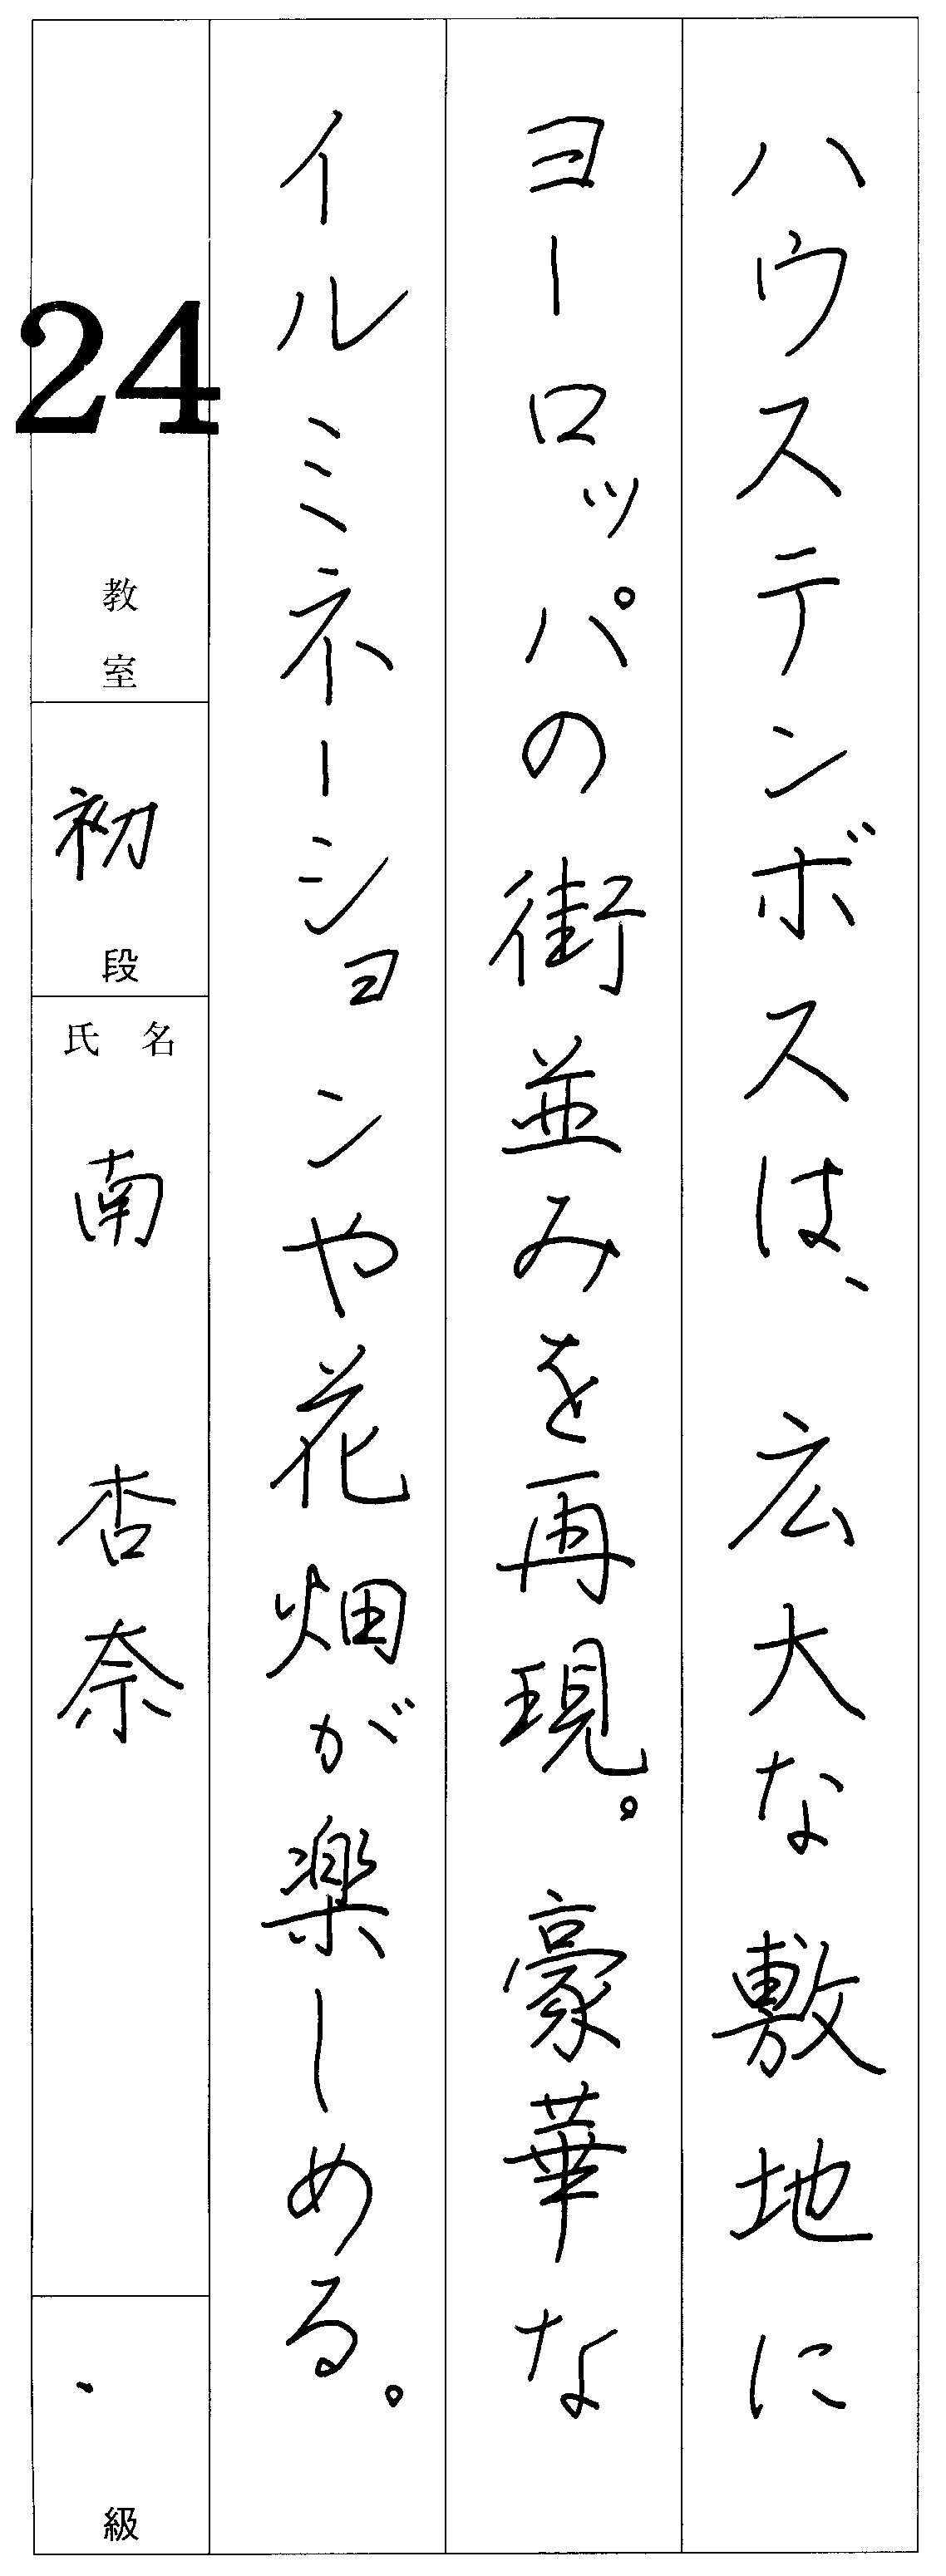 ハウステンボスは、広大な敷地に
ヨーロッパの街並みを再現。豪華な
イルミネーションや花畑が楽しめる。
24
教室
初段
氏名
南 杏奈
級